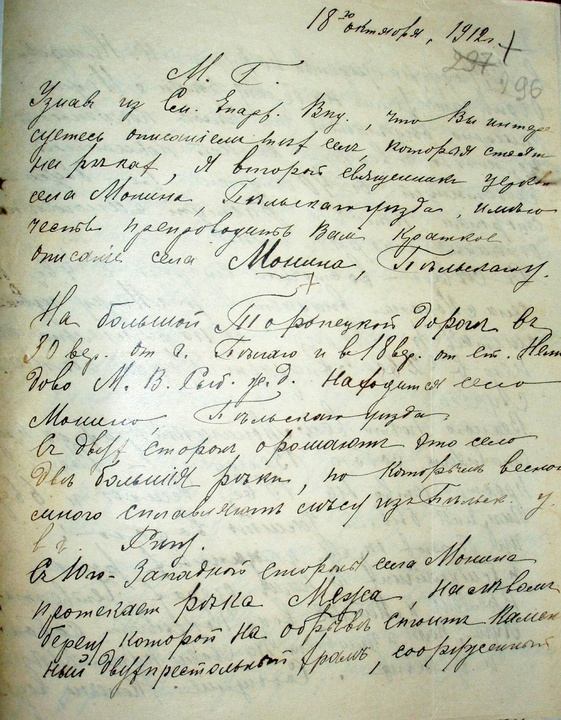 18 30 октября, 1912 г.
297
296
М. Г.
Узнав из См. Епарх. Вѣд., что Вы интере
суетесь описаніем тѣх сел, которыя стоят
на рѣках, я второй священник церкви
села Монина, Бѣльскаго уѣзда, имѣю
честь препроводить Вам краткое
описаніе села Монина, Бѣльскаго у.
На большой Торопецкой дороге в
30 вер. от г. Бѣлаго и в 18 вер. от ст. Нели
дово М. В. Рыб. ж. д. находится село
Монино Бѣльскаго уѣзда
Съ двух сторон орошают это село
Двѣ большія рѣки, по которым весною
много сплавляют лѣсу изъ Бѣльск. у.
в г. Ригу.
Съ Юго-Западной стороны села Монина
протекает рѣка Межа, на лѣвом
берегу которой на обрывѣ стоит камен
ный двухпрестольный храмъ, сооруженный